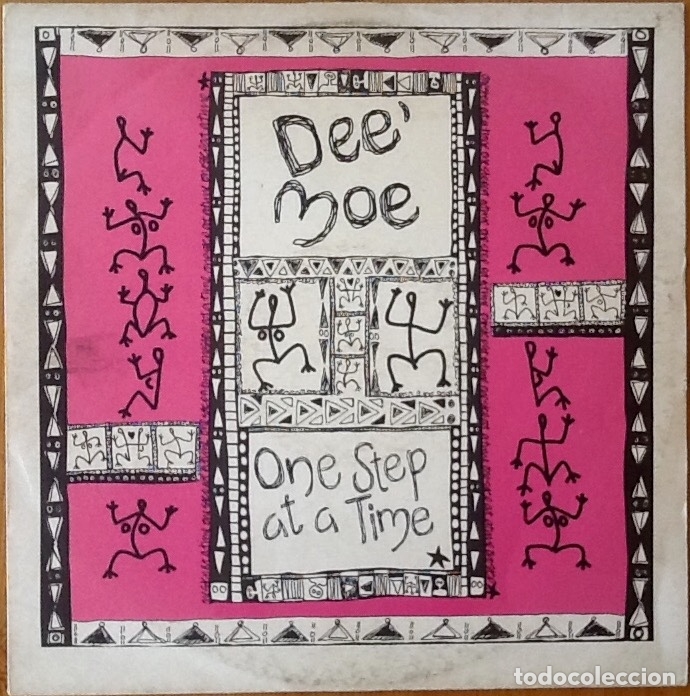 Dee'
Moe
One Step
at a Time
todocoleccion